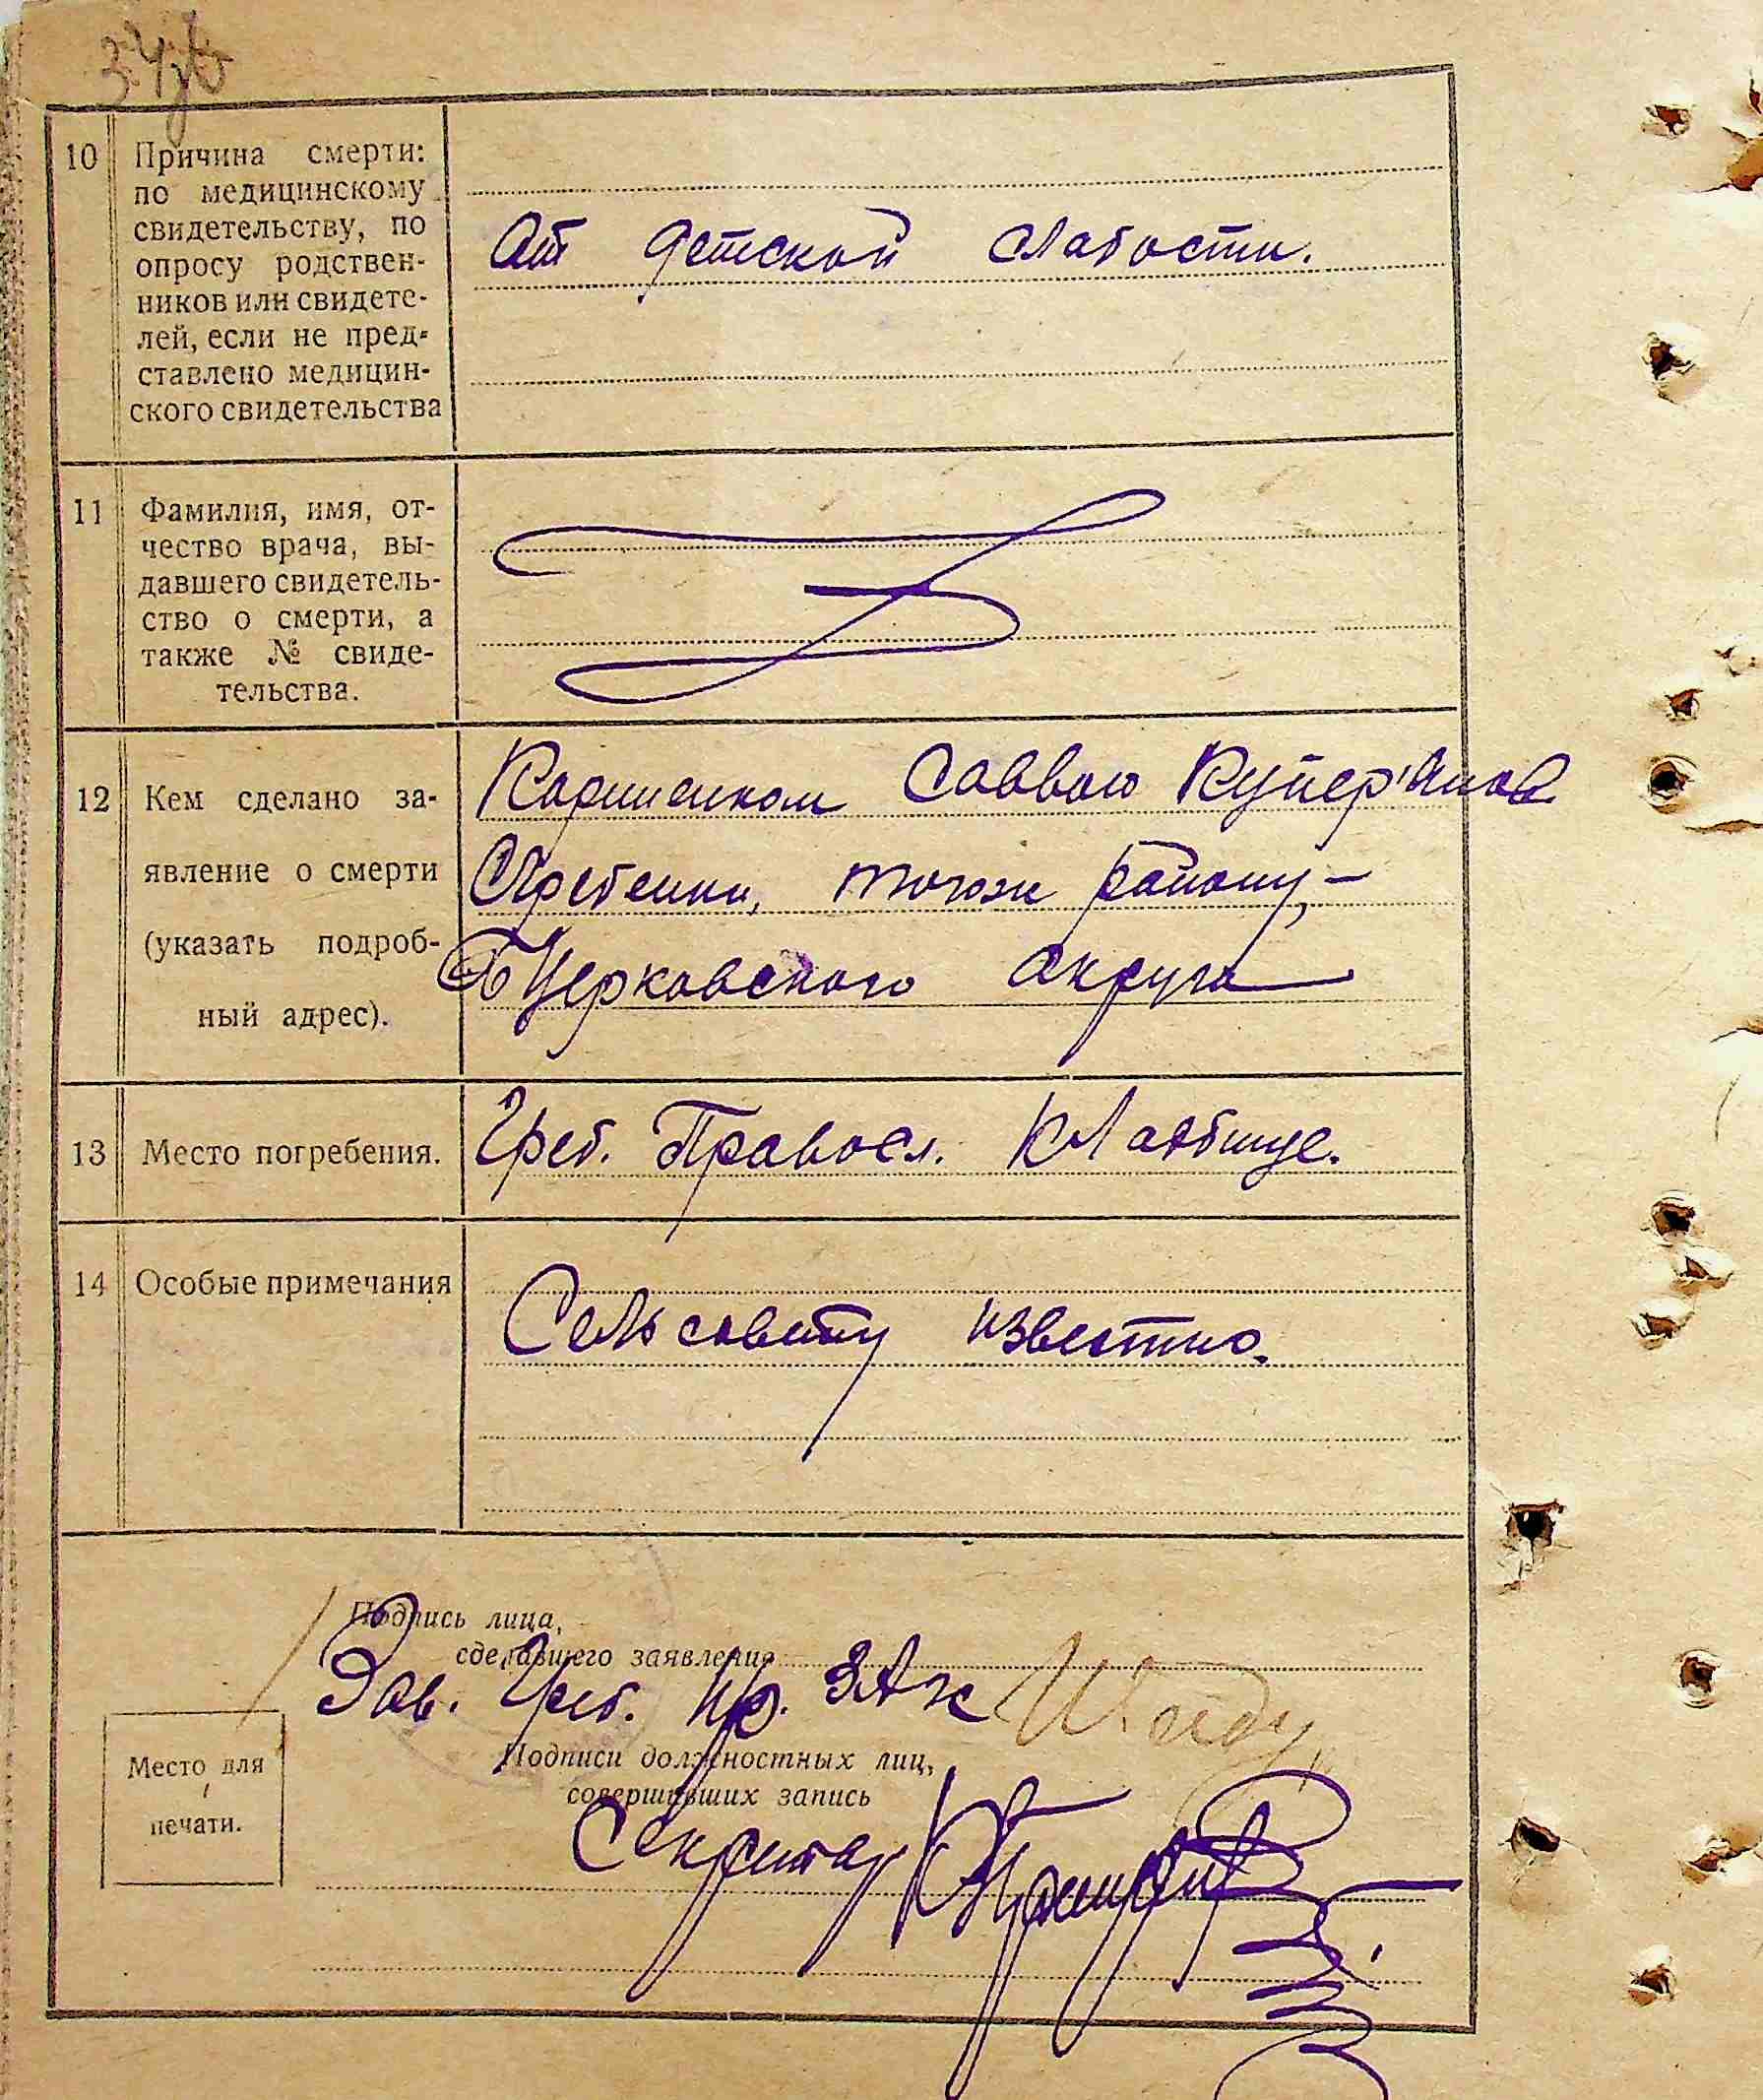 34
10 Причина смерти:
по медицинскому
свидетельству, по
опросу родствен-
ников или свидете-
лей, если не пред-
ставлено медицин-
ского свидетельства
От детской слабости.
11 Фамилия, имя, от-
чество врача, вы-
давшего свидетель-
ство о смерти, а
также № свиде-
тельства.
12 Кем сделано за-
явление о смерти
(указать подроб-
ный адрес).
Саввою Куприянов.
Гребенки, тогож району,-
Б Церковского округа
13 Место погребения.
Греб. Правосл. кладбище.
14 Особые примечания
Сельсовету известно.
Подпись лица,
сделавшего заявления
Зав. Греб. ЗАГС
Подписи должностных лиц,
совершивших запись
Секретарь
Место для
печати.